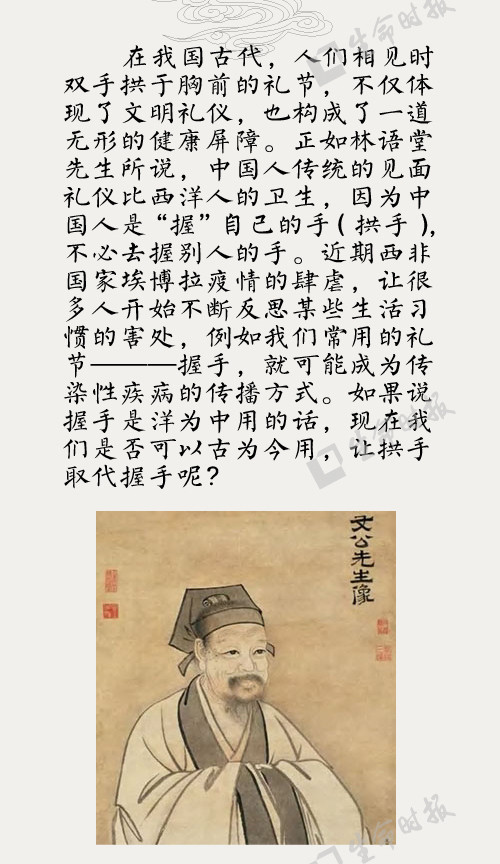 生命时报
在我国古代，人们相见时
双手拱于胸前的礼节，不仅体
现了文明礼仪，也构成了一道
无形的健康屏障。正如林语堂
先生所说，中国人传统的见面
礼仪比西洋人的卫生，因为中
国人是“握”自己的手(拱手),
不必去握别人的手。近期西非
国家埃博拉疫情的肆虐，让很
多人开始不断反思某些生活习
惯的害处，例如我们常用的礼
节———握手，就可能成为传
染性疾病的传播方式。如果说
握手是洋为中用的话，现在我
们是否可以古为今用，让拱手
取代握手呢？
生命时报
文公先生像
生命时报